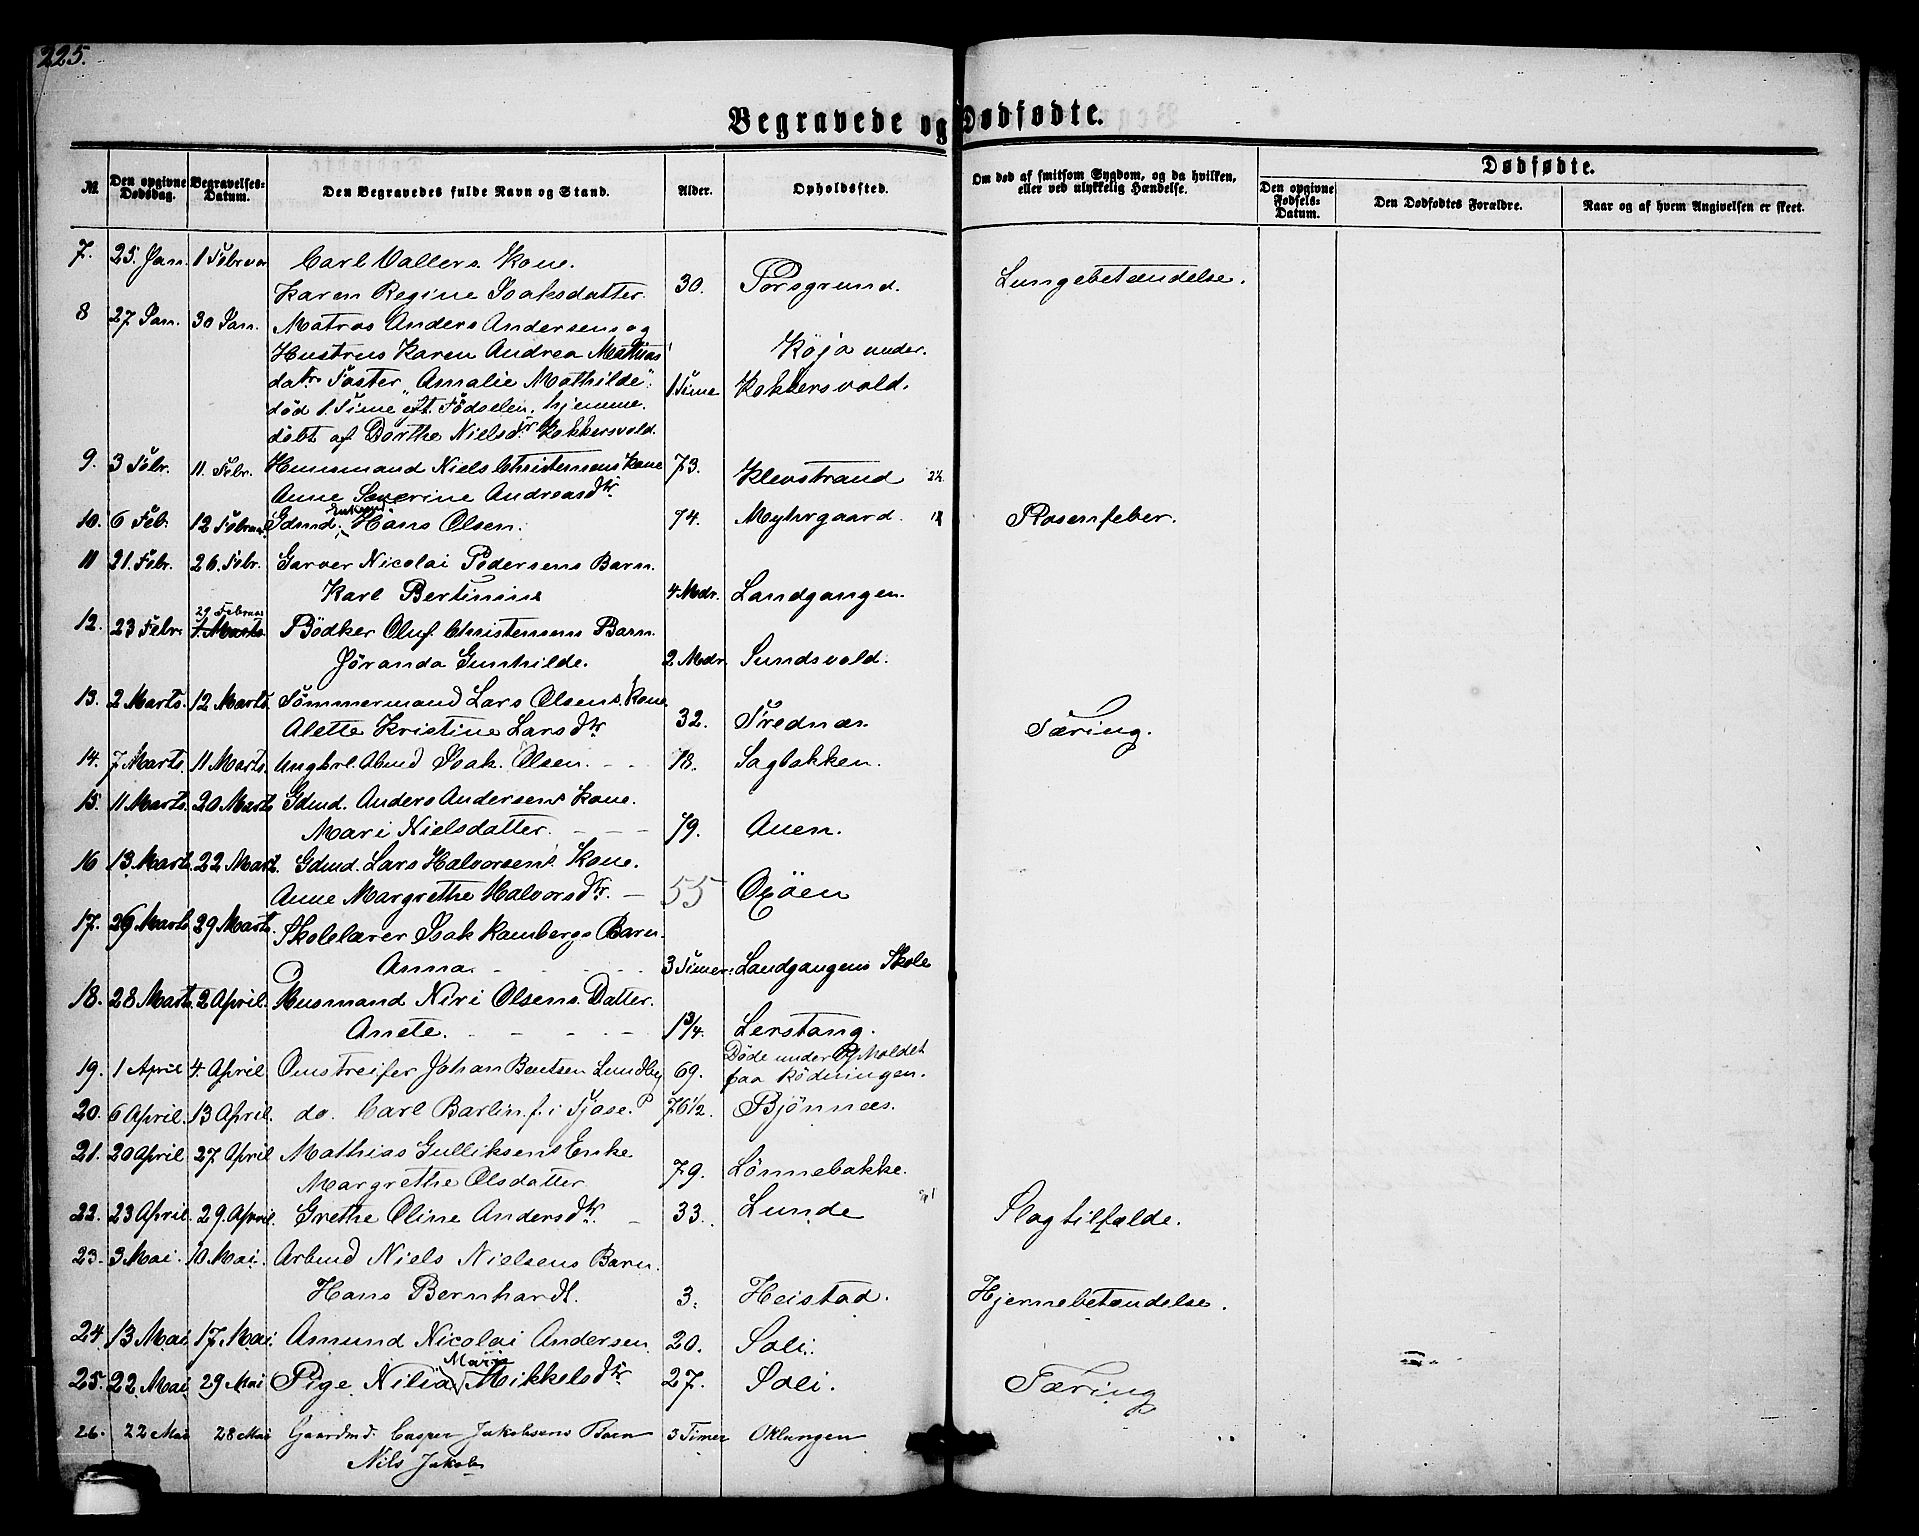 225.
Begravede og Dødfødte.
№ Den opgivne Dødsdag. Begravelses-Datum. Den Begravedes fulde Navn og Stand. Alder. Opholdsted. Om død af smitsom Sygdom, og da hvilken, eller ved ulykkelig Hændelse. Dødfødte. Den opgivne Fødsels-Datum. Den Dødfødtes Forældre. Naar og af hvem Angivelsen er skeet.
7. 25. Jan. 1 Februar Carl Vallers Kone.
Karen Regine Isaksdatter. 30. Porsgrund. Lungebetændelse.
8 27 Jan. 30 Jan. Matros Anders Andersens og
Hustrus Karen Andrea Mathias
datrs Foster "Amalie Mathilde" Köja under
død 1. Time eft. Fødselen, hjemme 1 Time Kokkersvold.
døbt af Dorthe Nielsdtr Kokkersvold.
9. 3 Febr. 11. Febr. Huusmand Niels Christensens Kone 73.
Anne Severine Andreasdtr. Klevstrand
10. 6 Feb. 12 Februar Gdmd. Enkemd. Hans Olsen. 74. Myhrgaard. Rosenfeber.
11 21. Febr. 26. Febr. Garver Nicolai Pedersens Barn.
Karl Bertinius 4 Mdr. Landgangen.
29 Februar
12. 23 Febr. 1. Marts Bödker Oluf Christensens Barn.
Jøranda Gunhilde. 2 Mdr. Sundsvold.
13. 2 Marts. 12 Marts. Tømmermand Lars Olsens Kone
Alette Kristine Larsdtr 32. Trednæs Tæring.
14. 7 Marts. 11 Marts. Ungkrl. Abmd Isak Olsen. 18. Sagbakken.
15. 11 Marts. 20 Marts Gdmd. Anders Andersens Kone.
Mari Nielsdatter. 79. Auen.
16 13. Marts. 22 Mart. Gdmd. Lars Halvorsens Kone.
Anne Margrethe Halvorsdtr. 55 Oxöen
17. 26 Marts 29 Marts. Skolelærer Isak Rambergs Barn.
Anna. 3 Timer. Landgangens Skole
18. 28 Marts. 2 April. Husmand Niri Olsens Datter.
Anete. 1 3/4. Lerstang.
Døde under Opholdet
19. 1 April 4. April Omstreifer Johan Bentsen Lundby 69. paa Rödningen.
20. 6 April. 13 April. do. Carl Barlin f. i Tjøse. 76 1/2. Bjönnes.
21. 20 April 27 April Mathias Gulliksens Enke
Margrethe Olsdatter 79. Lönnebakke.
22. 23 April. 29. April. Grethe Oline Andersdtr. 33. Lunde Slagtilfælde.
23. 3 Mai. 10 Mai. Arbmd Niels Nielsens Barn.
Hans Bernhardt. 3. Heistad. Hjernebetændelse.
24. 13 Mai 17. Mai. Amund Nicolai Andersen. 20. Soli.
Marie
25. 22. Mai 29 Mai Pige Nilia Mikkelsdtr 27. Soli. Tæring
26. 22 Mai 28 Mai Gaardmd. Casper Jakobsens Barn 3 Timer Oklungen
Nils Jakob